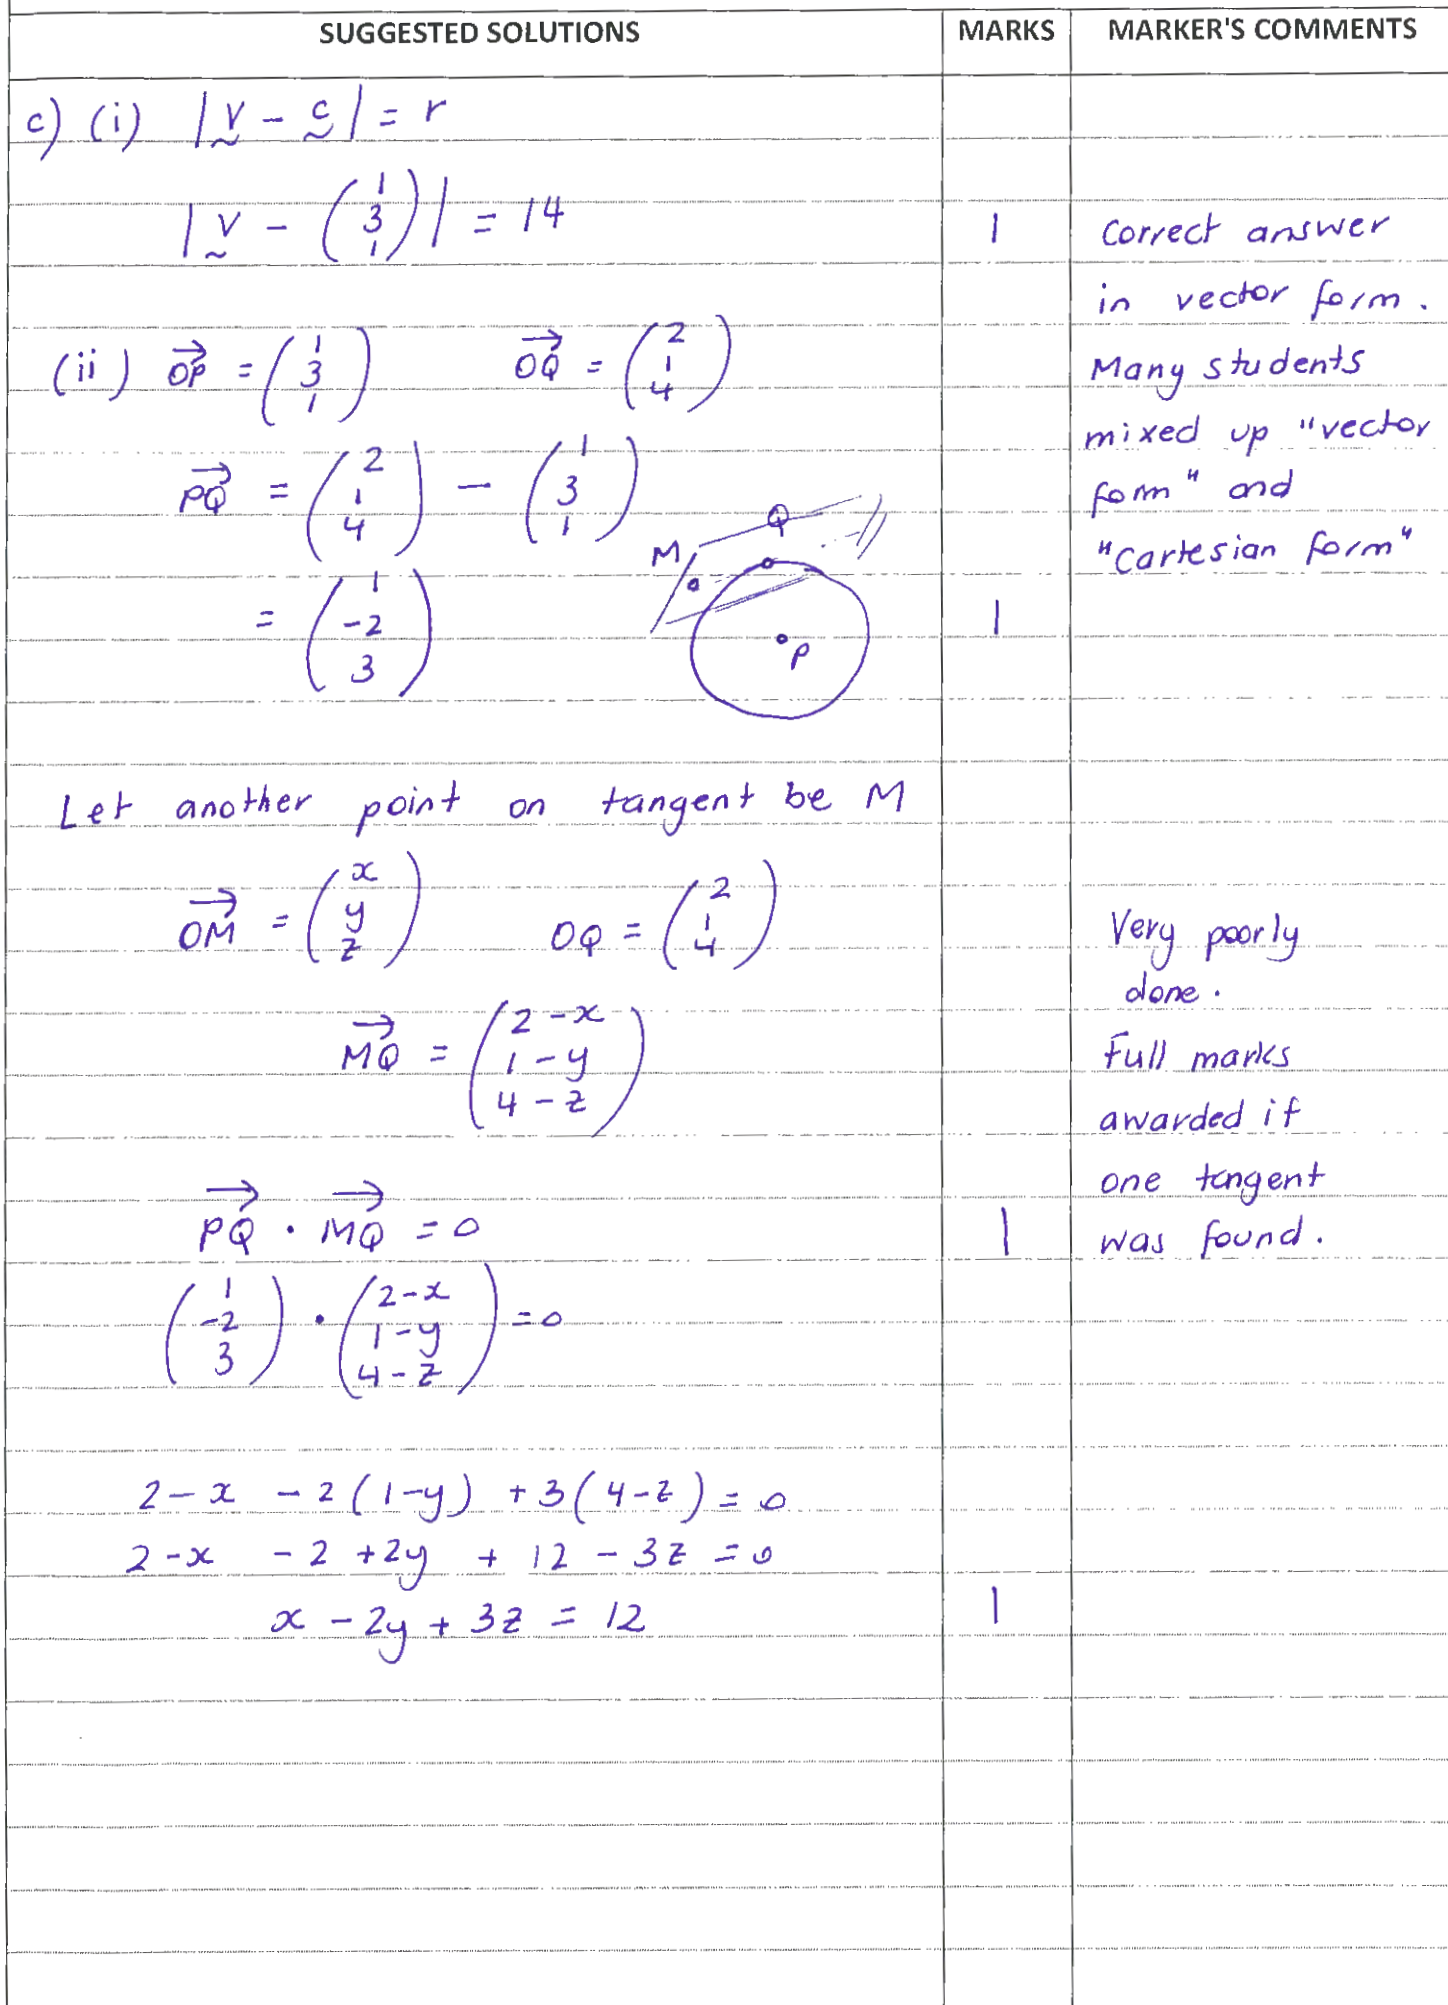 SUGGESTED SOLUTIONS MARKS MARKER'S COMMENTS
c) (i) |v - c| = r
|v - (1 3 1)| = 14 1 Correct answer
in vector form.
(ii) OP = (1 3 1) OQ = (2 1 4) Many students
mixed up "vector
PQ = (2 1 4) - (1 3 1) form" and
"Cartesian form"
M Q P
= (1 -2 3) 1
Let another point on tangent be M
OM = (x y z) OQ = (2 1 4) Very poorly
done.
MQ = (2-x 1-y 4-z) Full marks
awarded if
one tangent
PQ · MQ = 0 1 was found.
(1 -2 3) · (2-x 1-y 4-z) = 0
2-x -2(1-y) +3(4-z) = 0
2-x -2 +2y + 12 - 3z = 0
x - 2y + 3z = 12 1